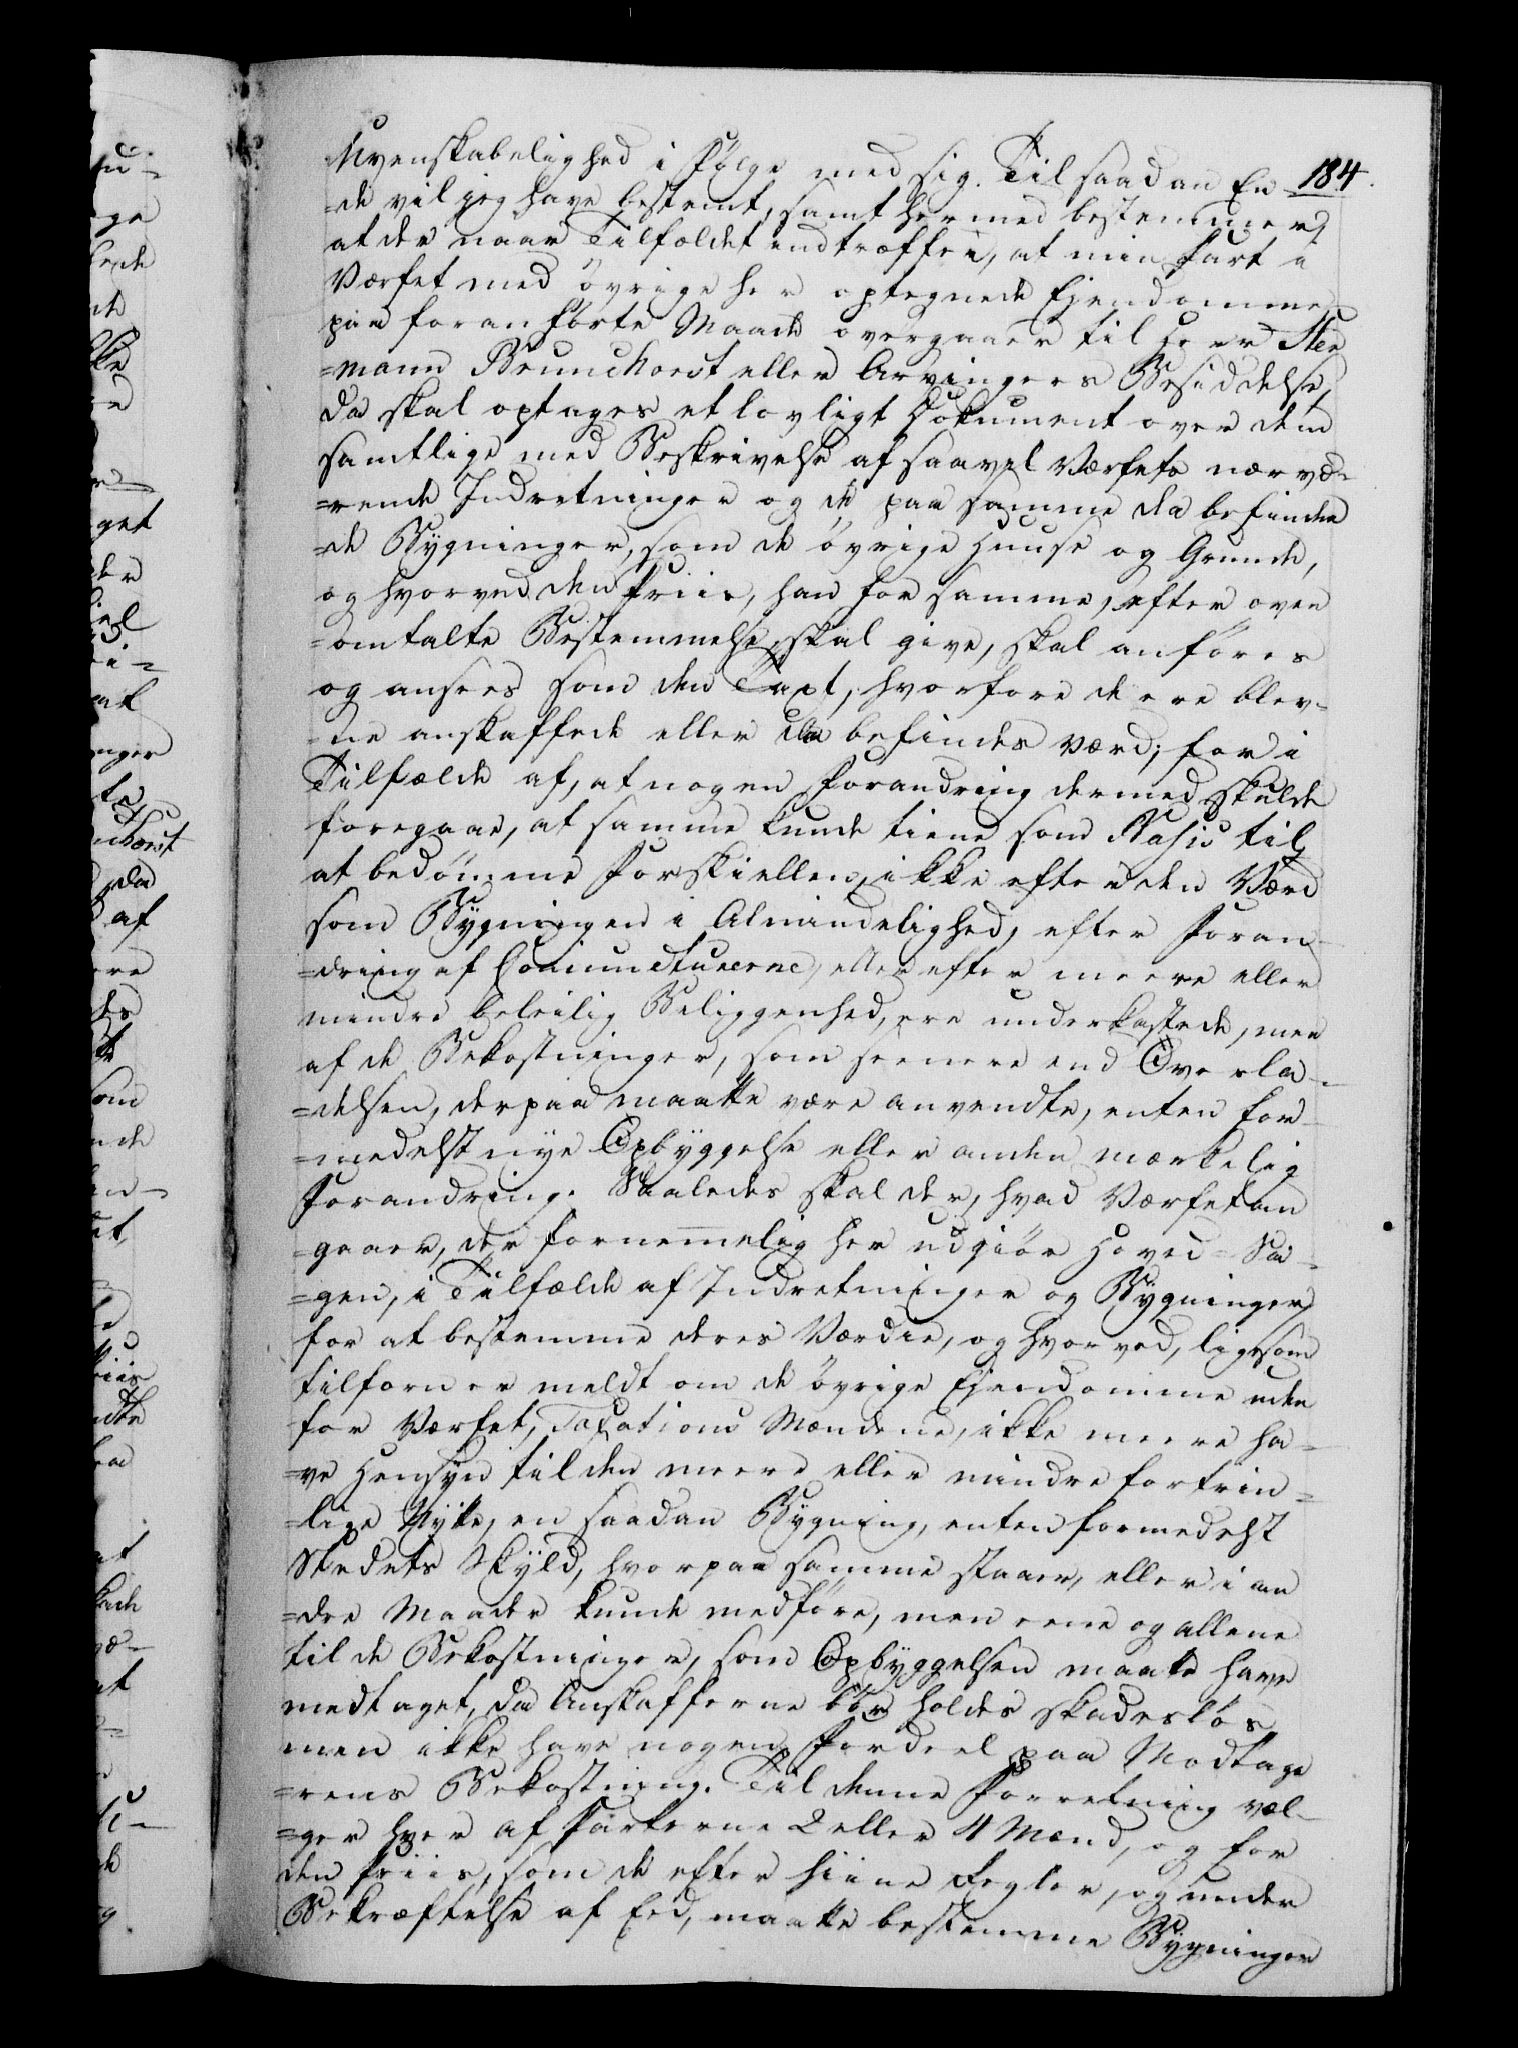 184.
Uvenskabelighed i Følge med sig. Til saadan En-
=de vil jeg have bestemt, samt hermed bestemmer,
at der naar Tilfældet indtræffer, at min Part i
Værfet med øvrige her optegnede Ejendomme
paa foranførte Maade overgaaer til Herr Her
=mann Brunchorst eller Arvingers Besiddelse,
da skal optages et lovligt Dokument over dem
samtlige med Beskrivelse af saavel Værfets nærvæ-
=rende Indretninger og de paa samme da befinden
=de Bygninger, som de øvrige Huuse og Grunde,
og hvorved den Priis, han for samme, efter oven
=omtalte Bestemmelse, skal give, skal anføres
og ansees som den Taxt, hvorfore de ere blev-
=ne anskaffede eller da befindes værd; for i
Tilfælde af, at nogen Forandring dermed skulde
foregaae, at samme kunde tiene som Basis til
at bedømme Forskiellen, ikke efter den Værd
som Bygningen i Almindelighed, efter Foran-
=dring af Conjuncturerne, eller efter meere eller
mindre beleilig Beliggenhed, ere underkastede, men
af de Bekostninger, som seenere end Overla-
=delsen, derpaa maatte være anvendte, enten for-
=medelst nye Opbyggelse eller anden mærkelig
Forandring. Saaledes skal der, hvad Værfet an
=gaaer, der fornemmelig her udgiør Hoved-Sa-
=gen, i Tilfælde af Indretninger og Bygninger,
for at bestemme deres Værdie, og hvorved, ligesom
tilforn er meldt om de øvrige Ejendomme uden
for Værfet, Taxations Mændene, ikke meere ha-
=ve Hensyn til den meere eller mindre fortrin-
=lige Nytte, en saadan Bygning, enten formedelst
Stedets Skyld, hvorpaa samme staaer, eller i an
=dre Maader kunde medføre, men eene og allene
til de Bekostninger, som Opbyggelsen maatte have
medtaget, da Anskafferne bør holdes skadesløs,
men ikke have nogen Fordeel paa Modtage
=rens Bekostning. Til denne Forretning væl-
=ger hver af Parterne 2 eller 4 Mænd, og for
den Priis, som de efter hiine Regler, og under
Bekræftelse af Eed, maatte bestemme Bygninger